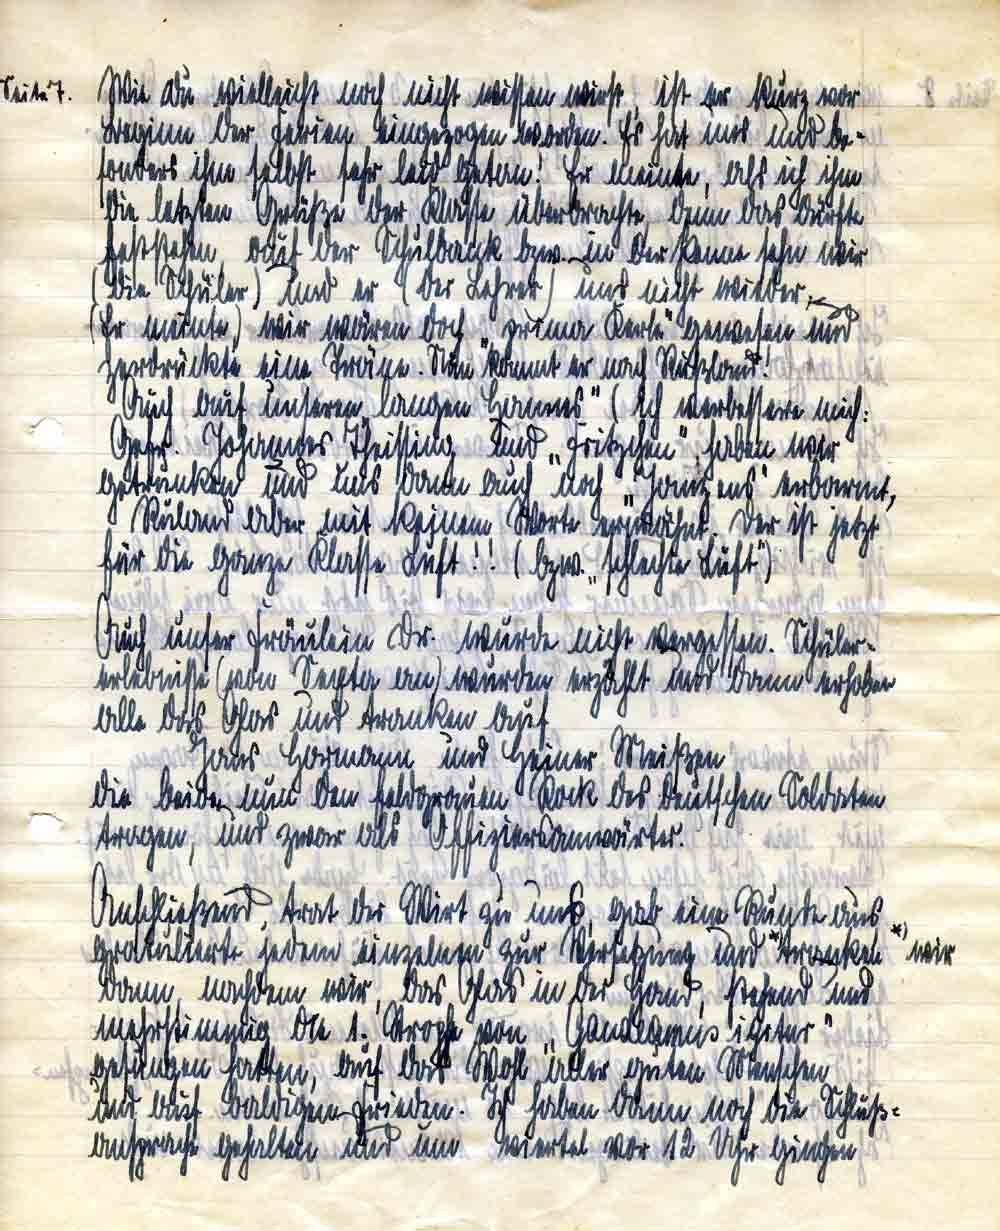 Seite 7.
Wie Du vielleicht noch nicht wissen wirst, ist er kurz vor
Beginn der Ferien eingezogen worden. Es hat uns und be-
sonders ihm selbst sehr leid getan! Er meinte, als ich ihm
die letzten Grüsze der Klasse überbrachte, denn das dürfte
feststehen, auf der Schulbank bzw. in der Penne sehn wir
(die Schüler) und er (der Lehrer) uns nicht wieder,
(Er meinte,) wir wären doch „prima Kerle" gewesen und
zerdrückte eine Träne. Nun kommt er nach Ruszland!
Auch auf unseren „langen Hannes" (ich verbessere mich:
Gefr. Johannes Theissing und „Fritzchen", haben wir
getrunken und uns dann auch noch „Jansens" erbarmt,
Ruland aber mit keinem Worte erwähnt. Der ist jetzt
für die ganze Klasse Luft!! (bzw. „schlechte Luft")
Auch unser Fräulein Dr. wurde nicht vergessen. Schüler-
erlebnisse (von Sexta an) wurden erzählt und dann erhoben
alle das Glas und tranken auf
Hans Hormann und Heiner Meiszen
die beide nun den feldgrauen Rock des deutschen Soldaten
tragen, und zwar als Offiziersanwärter.
Anschlieszend trat der Wirt zu uns, gab eine Runde aus
gratulierte jedem einzelnen zur Versetzung und *tranken *) wir
dann, nachdem wir, das Glas in der Hand, stehend und
mehrstimmig die 1. Strophe von „Gaudeamus igitur"
gesungen hatten, auf das Wohl aller guten Menschen
und auf baldigen Frieden. Ich haben dann noch die Schlusz-
ansprache gehalten und um viertel vor 12 Uhr gingen